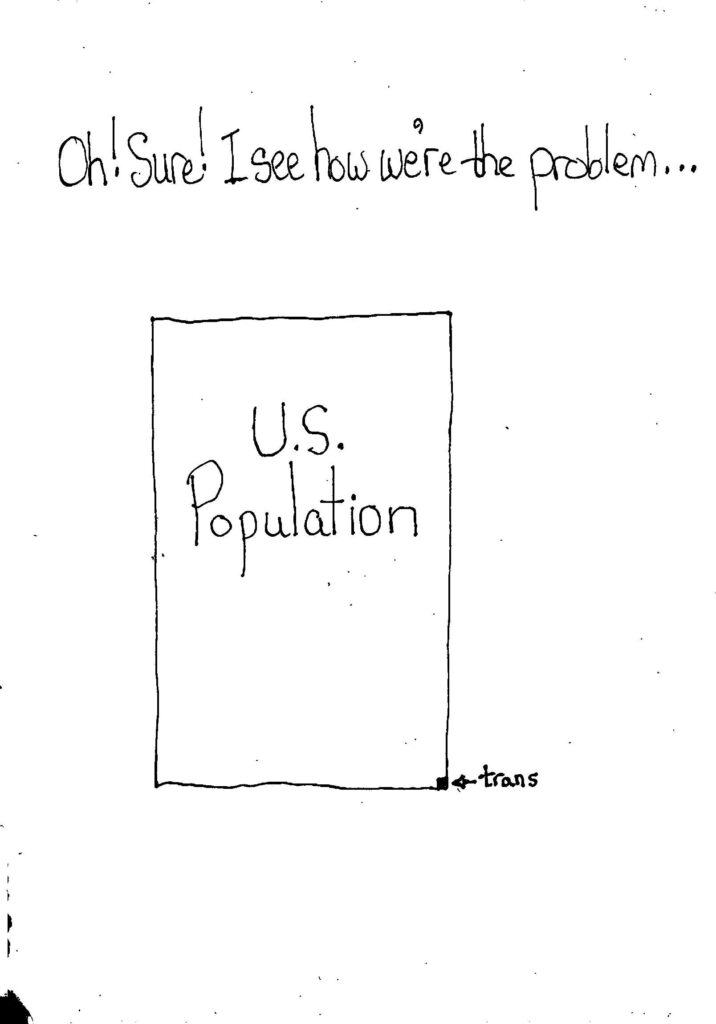 Oh! Sure! I see how we're the problem...
U.S.
Population
trans